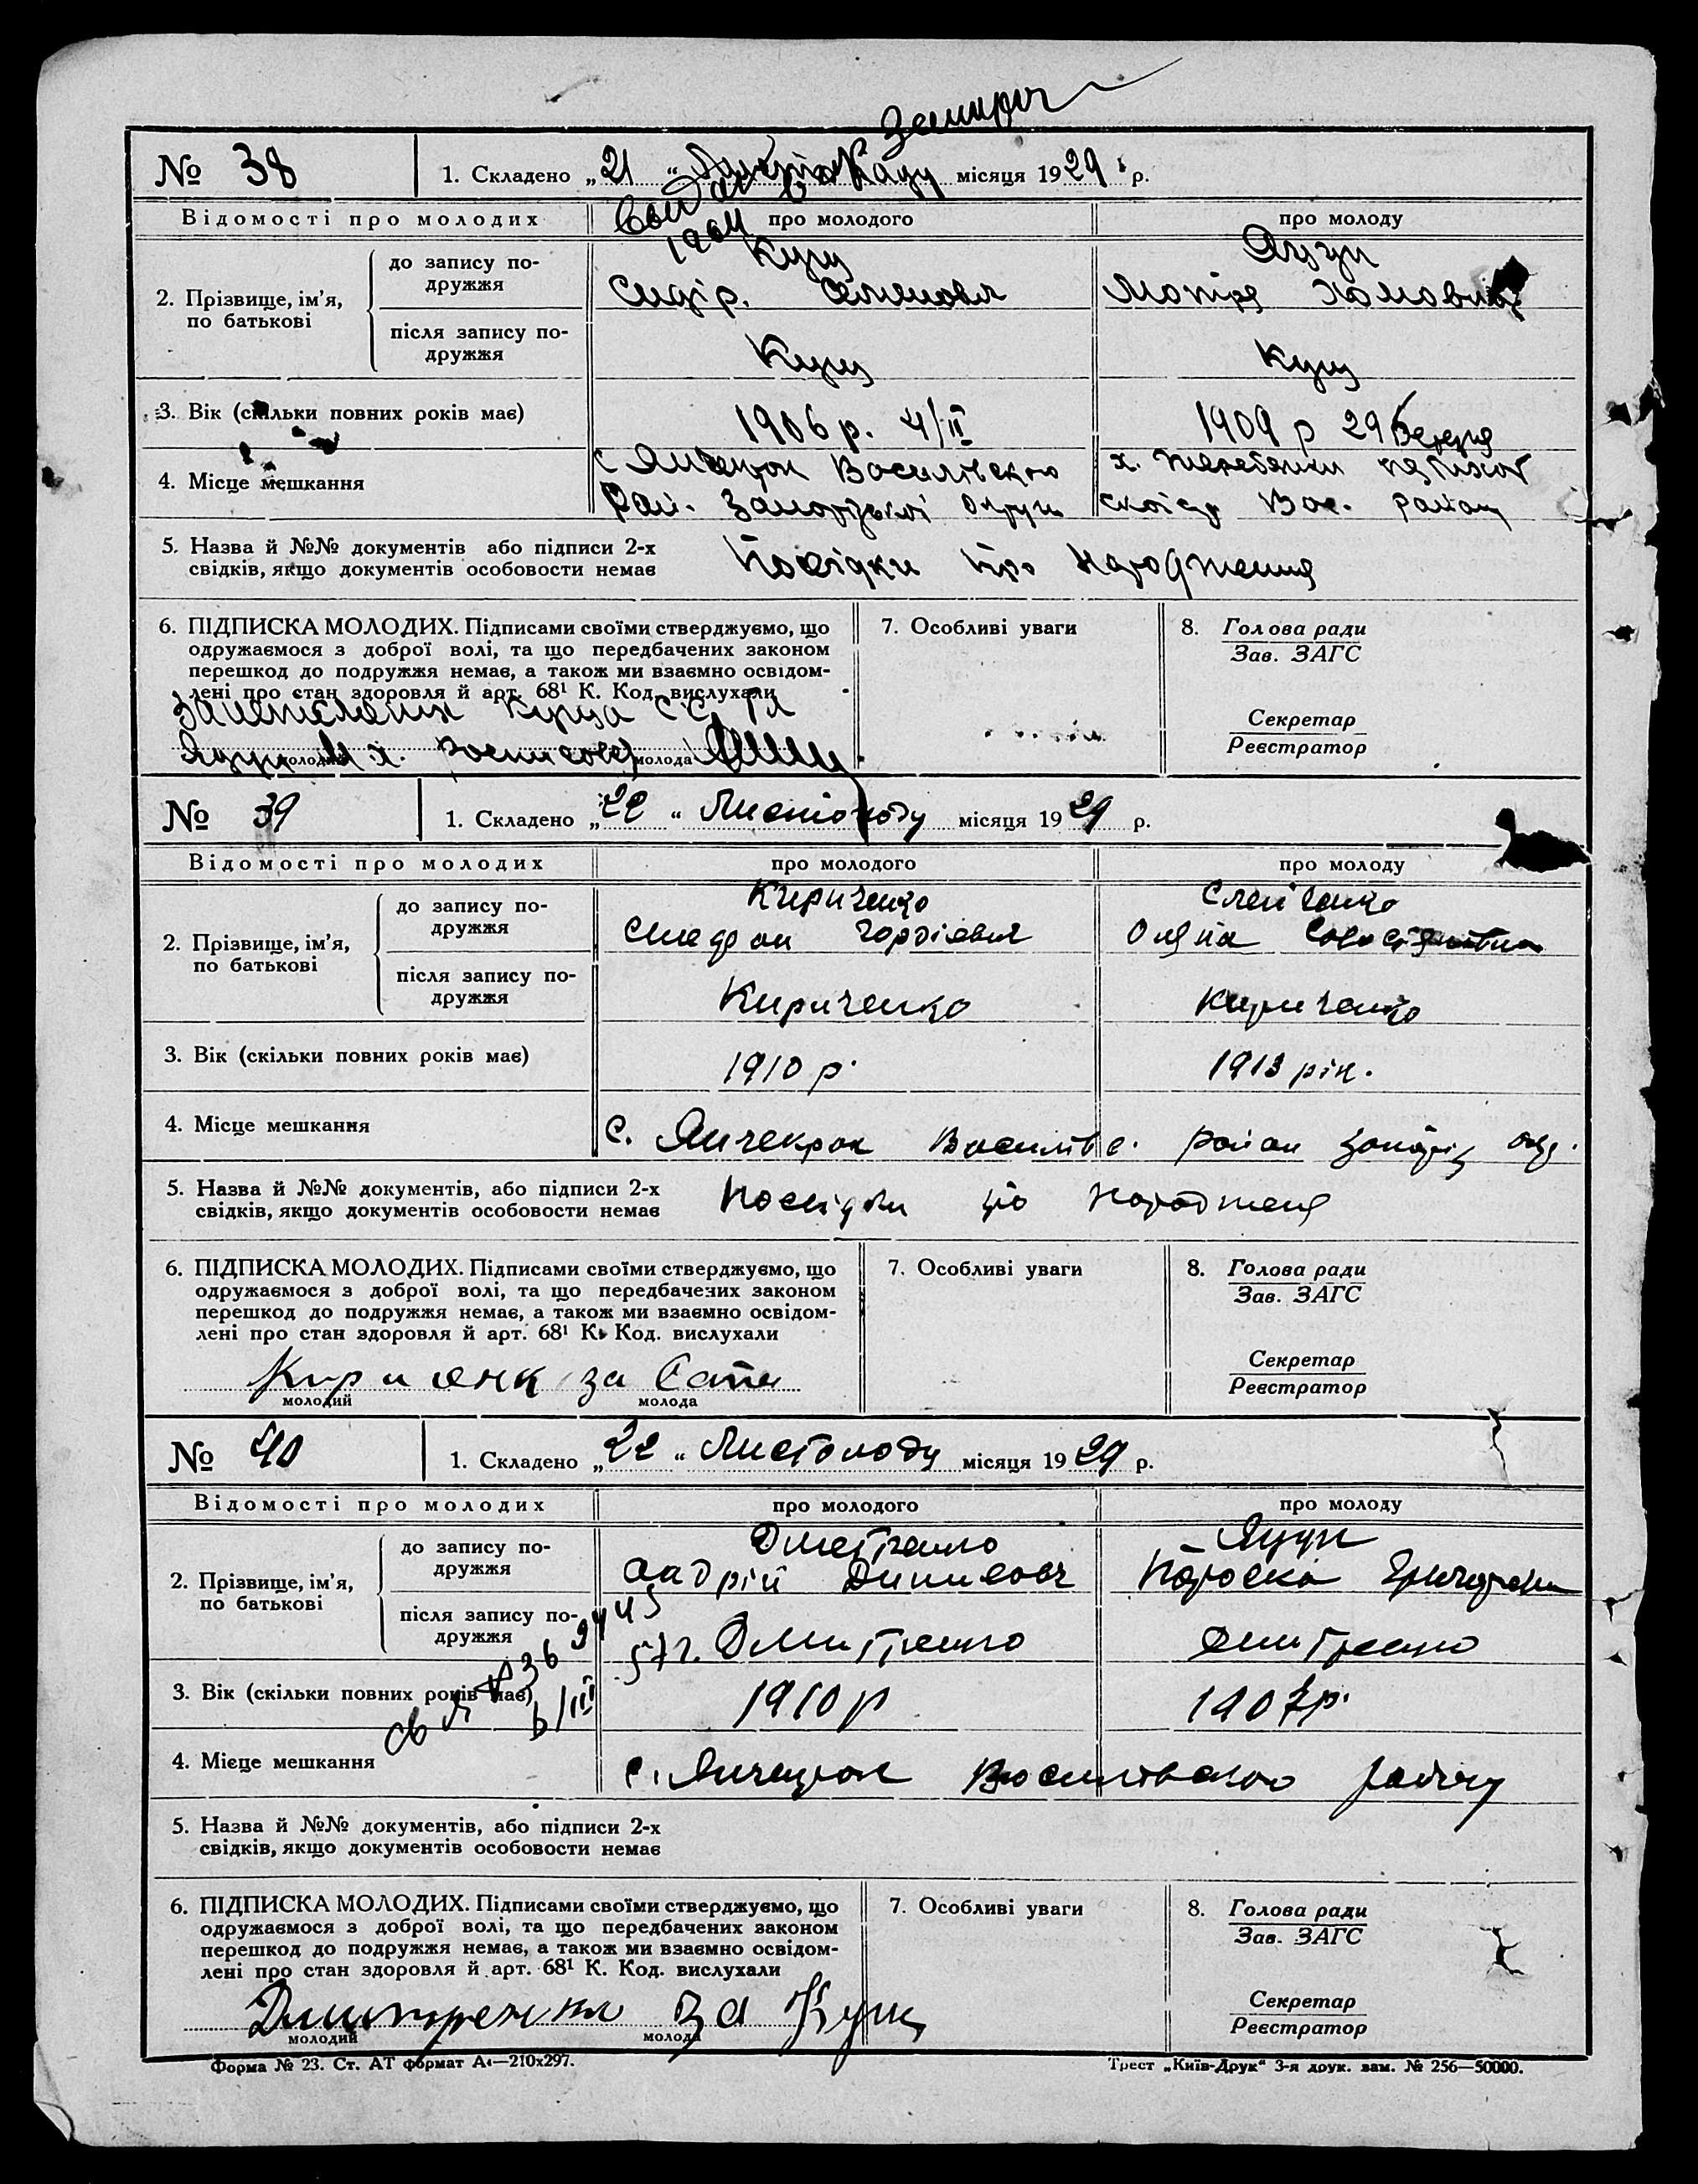 № 38
1. Складено „21“ Листопаду місяця 1929 р.
Відомості про молодих
про молодого
про молоду
2. Прізвище, ім'я, по батькові
до запису подружжя
Кущ
Сидір Семенович
Яцун
Мотря Хомовна
після запису подружжя
Кущ
Кущ
3. Вік (скільки повних років має)
1906 р. 4/II
1909 р 29 березня
4. Місце мешкання
с Янчекрак Василівского
Рай. Запорізької Округи
х.
Вас. району
5. Назва й №№ документів або підписи 2-х
свідків, якщо документів особовости немає
Посвідки про народження
6. ПІДПИСКА МОЛОДИХ. Підписами своїми стверджуємо, що
одружаємося з доброї волі, та що передбачених законом
перешкод до подружжя немає, а також ми взаємно освідом-
лені про стан здоровля й арт. 68¹ К. Код. вислухали
Куща С.С. та
Яцун М.Х. росписався
молодий
молода
7. Особливі уваги
8. Голова ради
Зав. ЗАГС
Секретар
Реєстратор
№ 39
1. Складено „22“ Листопаду місяця 1929 р.
Відомості про молодих
про молодого
про молоду
2. Прізвище, ім'я, по батькові
до запису подружжя
Кириченко
Гордієвич
після запису подружжя
Кириченко
Кириченко
3. Вік (скільки повних років має)
1910 р.
1913 рік.
4. Місце мешкання
с. Янчекрак Василівс. район Запоріз окр.
5. Назва й №№ документів, або підписи 2-х
свідків, якщо документів особовости немає
Посвідки про народженя
6. ПІДПИСКА МОЛОДИХ. Підписами своїми стверджуємо, що
одружаємося з доброї волі, та що передбачених законом
перешкод до подружжя немає, а також ми взаємно освідом-
лені про стан здоровля й арт. 68¹ К. Код. вислухали
за
молодий
молода
7. Особливі уваги
8. Голова ради
Зав. ЗАГС
Секретар
Реєстратор
№ 40
1. Складено „22“ Листопаду місяця 1929 р.
Відомості про молодих
про молодого
про молоду
2. Прізвище, ім'я, по батькові
до запису подружжя
Дметренко
Андрій Денисович
Яцун
Параска Григоровна
після запису подружжя
Дмитренко
Дмитренко
3. Вік (скільки повних років має)
6/III
1910 р
1907 р.
4. Місце мешкання
с. Янчекрак Василівського району
5. Назва й №№ документів, або підписи 2-х
свідків, якщо документів особовости немає
6. ПІДПИСКА МОЛОДИХ. Підписами своїми стверджуємо, що
одружаємося з доброї волі, та що передбачених законом
перешкод до подружжя немає, а також ми взаємно освідом-
лені про стан здоровля й арт. 68¹ К. Код. вислухали
Дмитренко За Кущ
молодий
молода
7. Особливі уваги
8. Голова ради
Зав. ЗАГС
Секретар
Реєстратор
Форма № 23. Ст. АТ формат А4—210х297.
Трест „Київ-Друк“ 3-я друк. зам. № 256—50000.